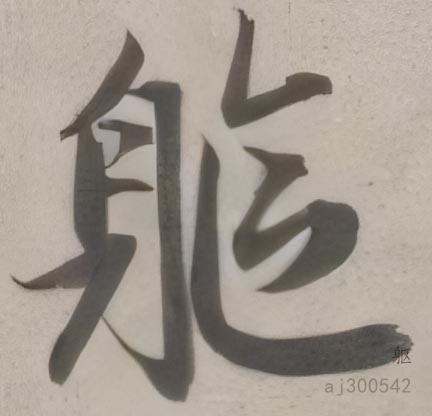 躯
躯
aj300542